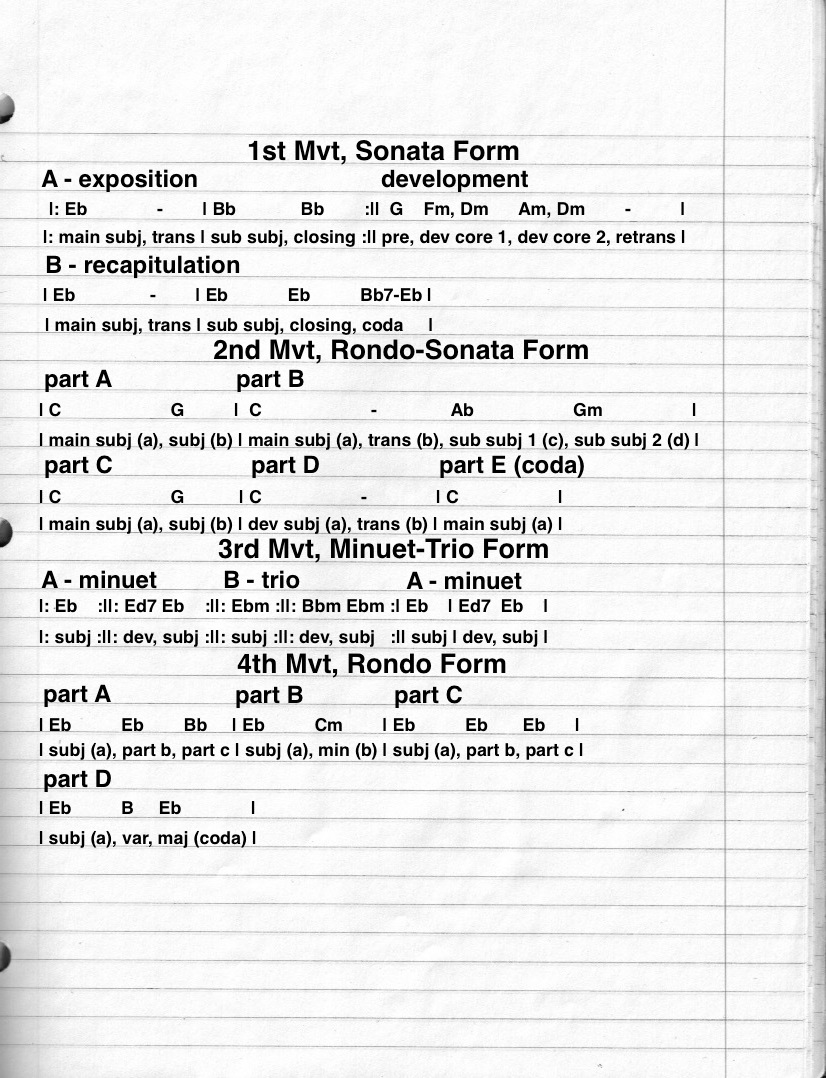 1st Mvt, Sonata Form
A - exposition development
l: Eb - l Bb Bb :ll G Fm, Dm Am, Dm - l
l: main subj, trans l sub subj, closing :ll pre, dev core 1, dev core 2, retrans l
B - recapitulation
l Eb - l Eb Eb Bb7-Eb l
l main subj, trans l sub subj, closing, coda l
2nd Mvt, Rondo-Sonata Form
part A part B
l C G l C - Ab Gm l
l main subj (a), subj (b) l main subj (a), trans (b), sub subj 1 (c), sub subj 2 (d) l
part C part D part E (coda)
l C G l C - l C l
l main subj (a), subj (b) l dev subj (a), trans (b) l main subj (a) l
3rd Mvt, Minuet-Trio Form
A - minuet B - trio A - minuet
l: Eb :ll: Ed7 Eb :ll: Ebm :ll: Bbm Ebm :l Eb l Ed7 Eb l
l: subj :ll: dev, subj :ll: subj :ll: dev, subj :ll subj l dev, subj l
4th Mvt, Rondo Form
part A part B part C
l Eb Eb Bb l Eb Cm l Eb Eb Eb l
l subj (a), part b, part c l subj (a), min (b) l subj (a), part b, part c l
part D
l Eb B Eb l
l subj (a), var, maj (coda) l